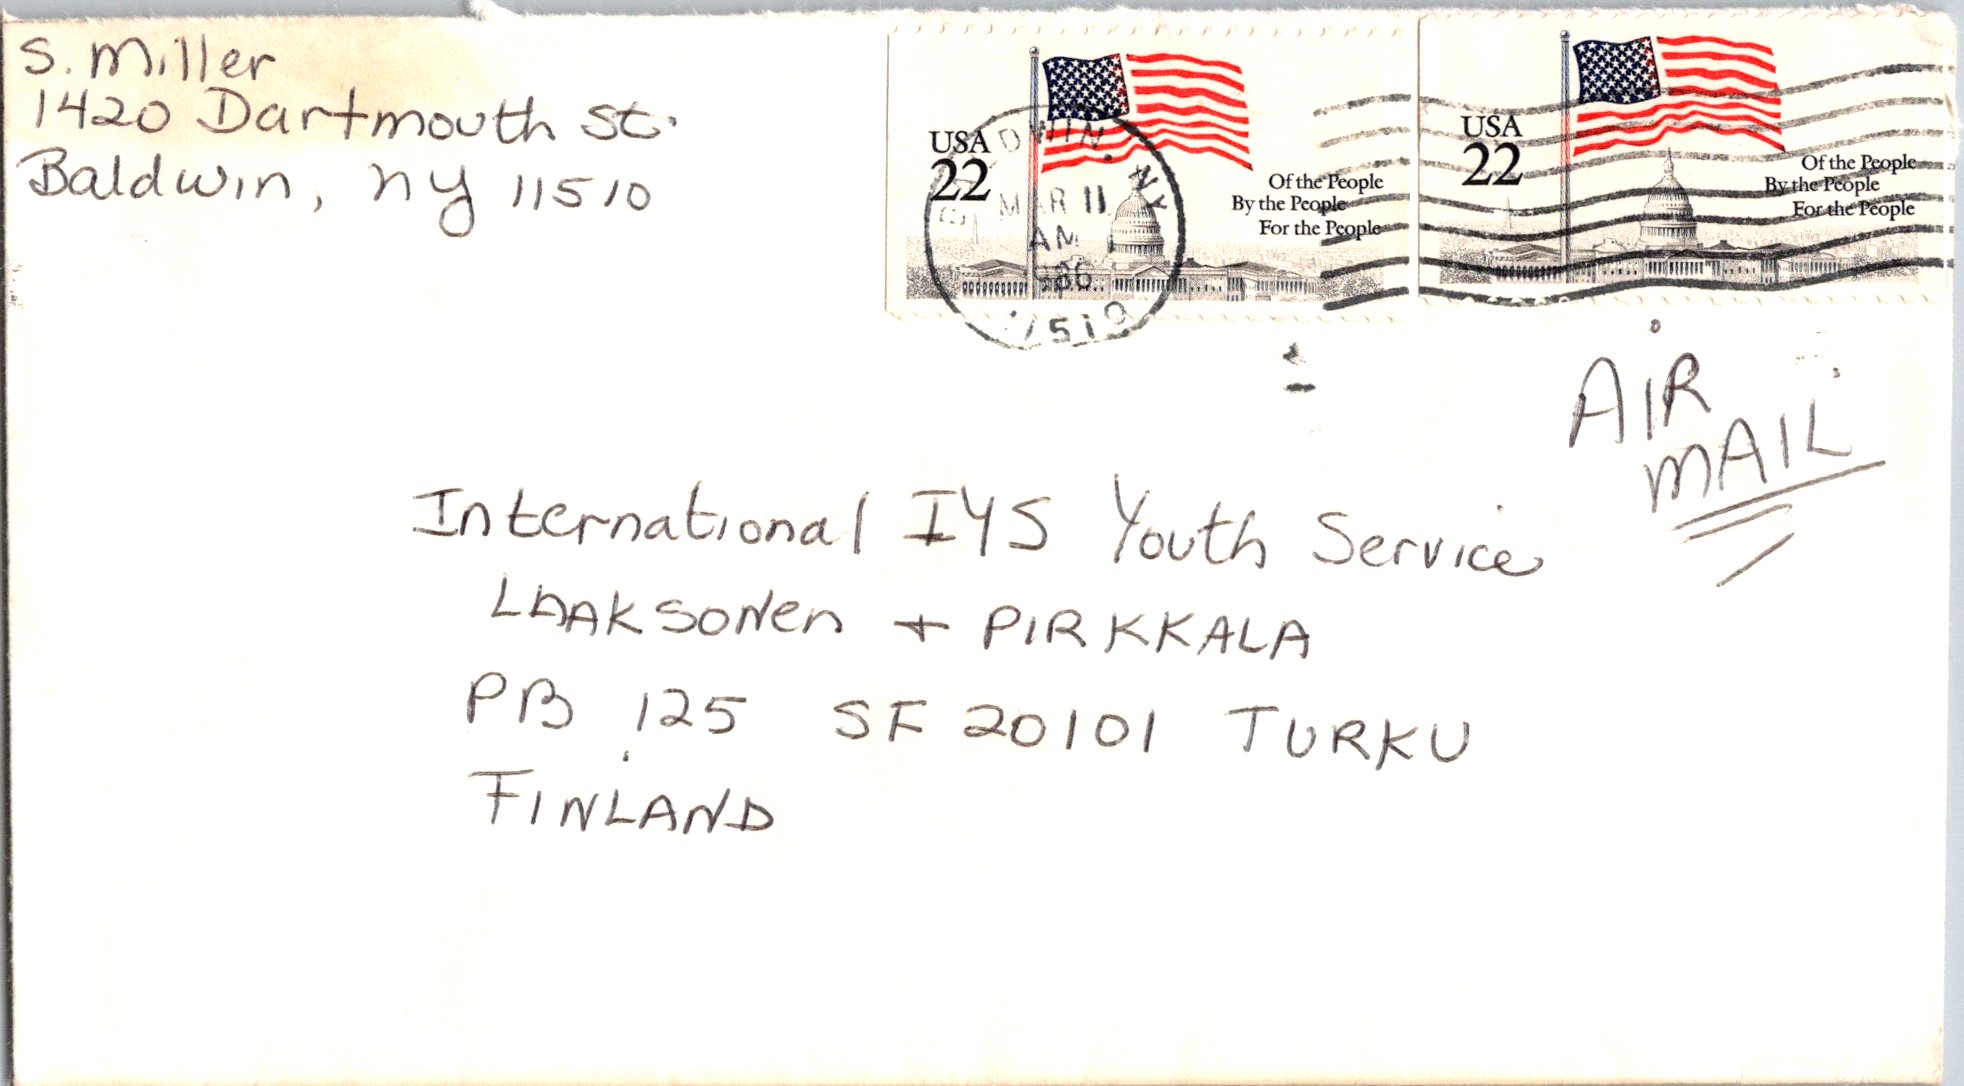 S. Miller
1420 Dartmouth St.
Baldwin, NY 11510
USA
22
Of the People
By the People
For the People
USA
22
Of the People
By the People
For the People
DWIN, NY
MAR 11
AM
1986
11510
AIR
MAIL
International IYS Youth Service
LAAKSONEN + PIRKKALA
PB 125 SF 20101 TURKU
FINLAND